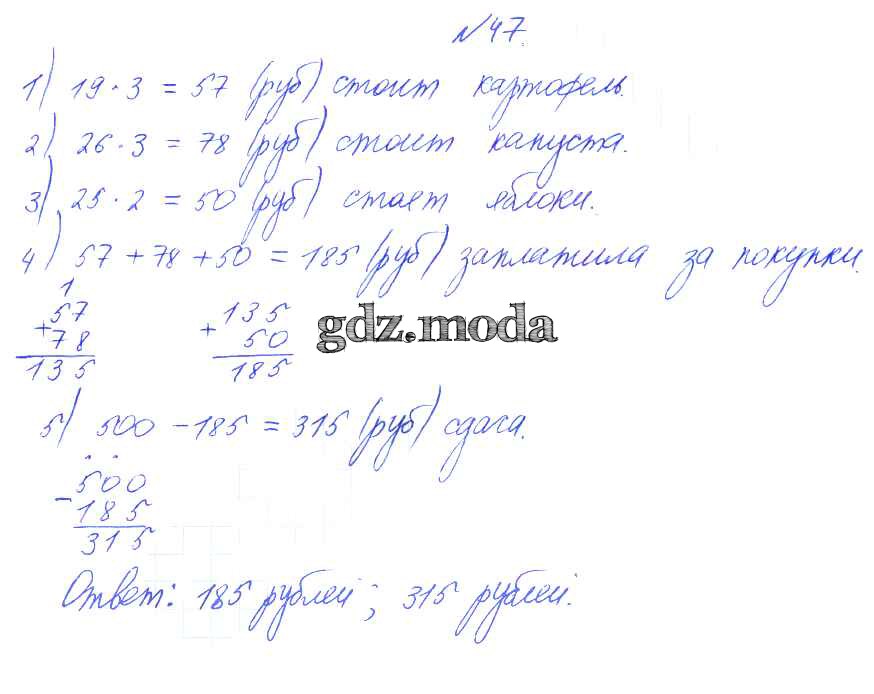 №47.
1) 19·3 = 57 (руб) стоит картофель.
2) 26·3 = 78 (руб) стоит капуста.
3) 25·2 = 50 (руб) стоят яблоки.
4) 57+78+50 = 185 (руб) заплатила за покупки.
1
57
+
78
135
135
+
50
185
gdz.moda
5) 500 - 185 = 315 (руб) сдача.
. .
500
-
185
315
Ответ: 185 рублей; 315 рублей.